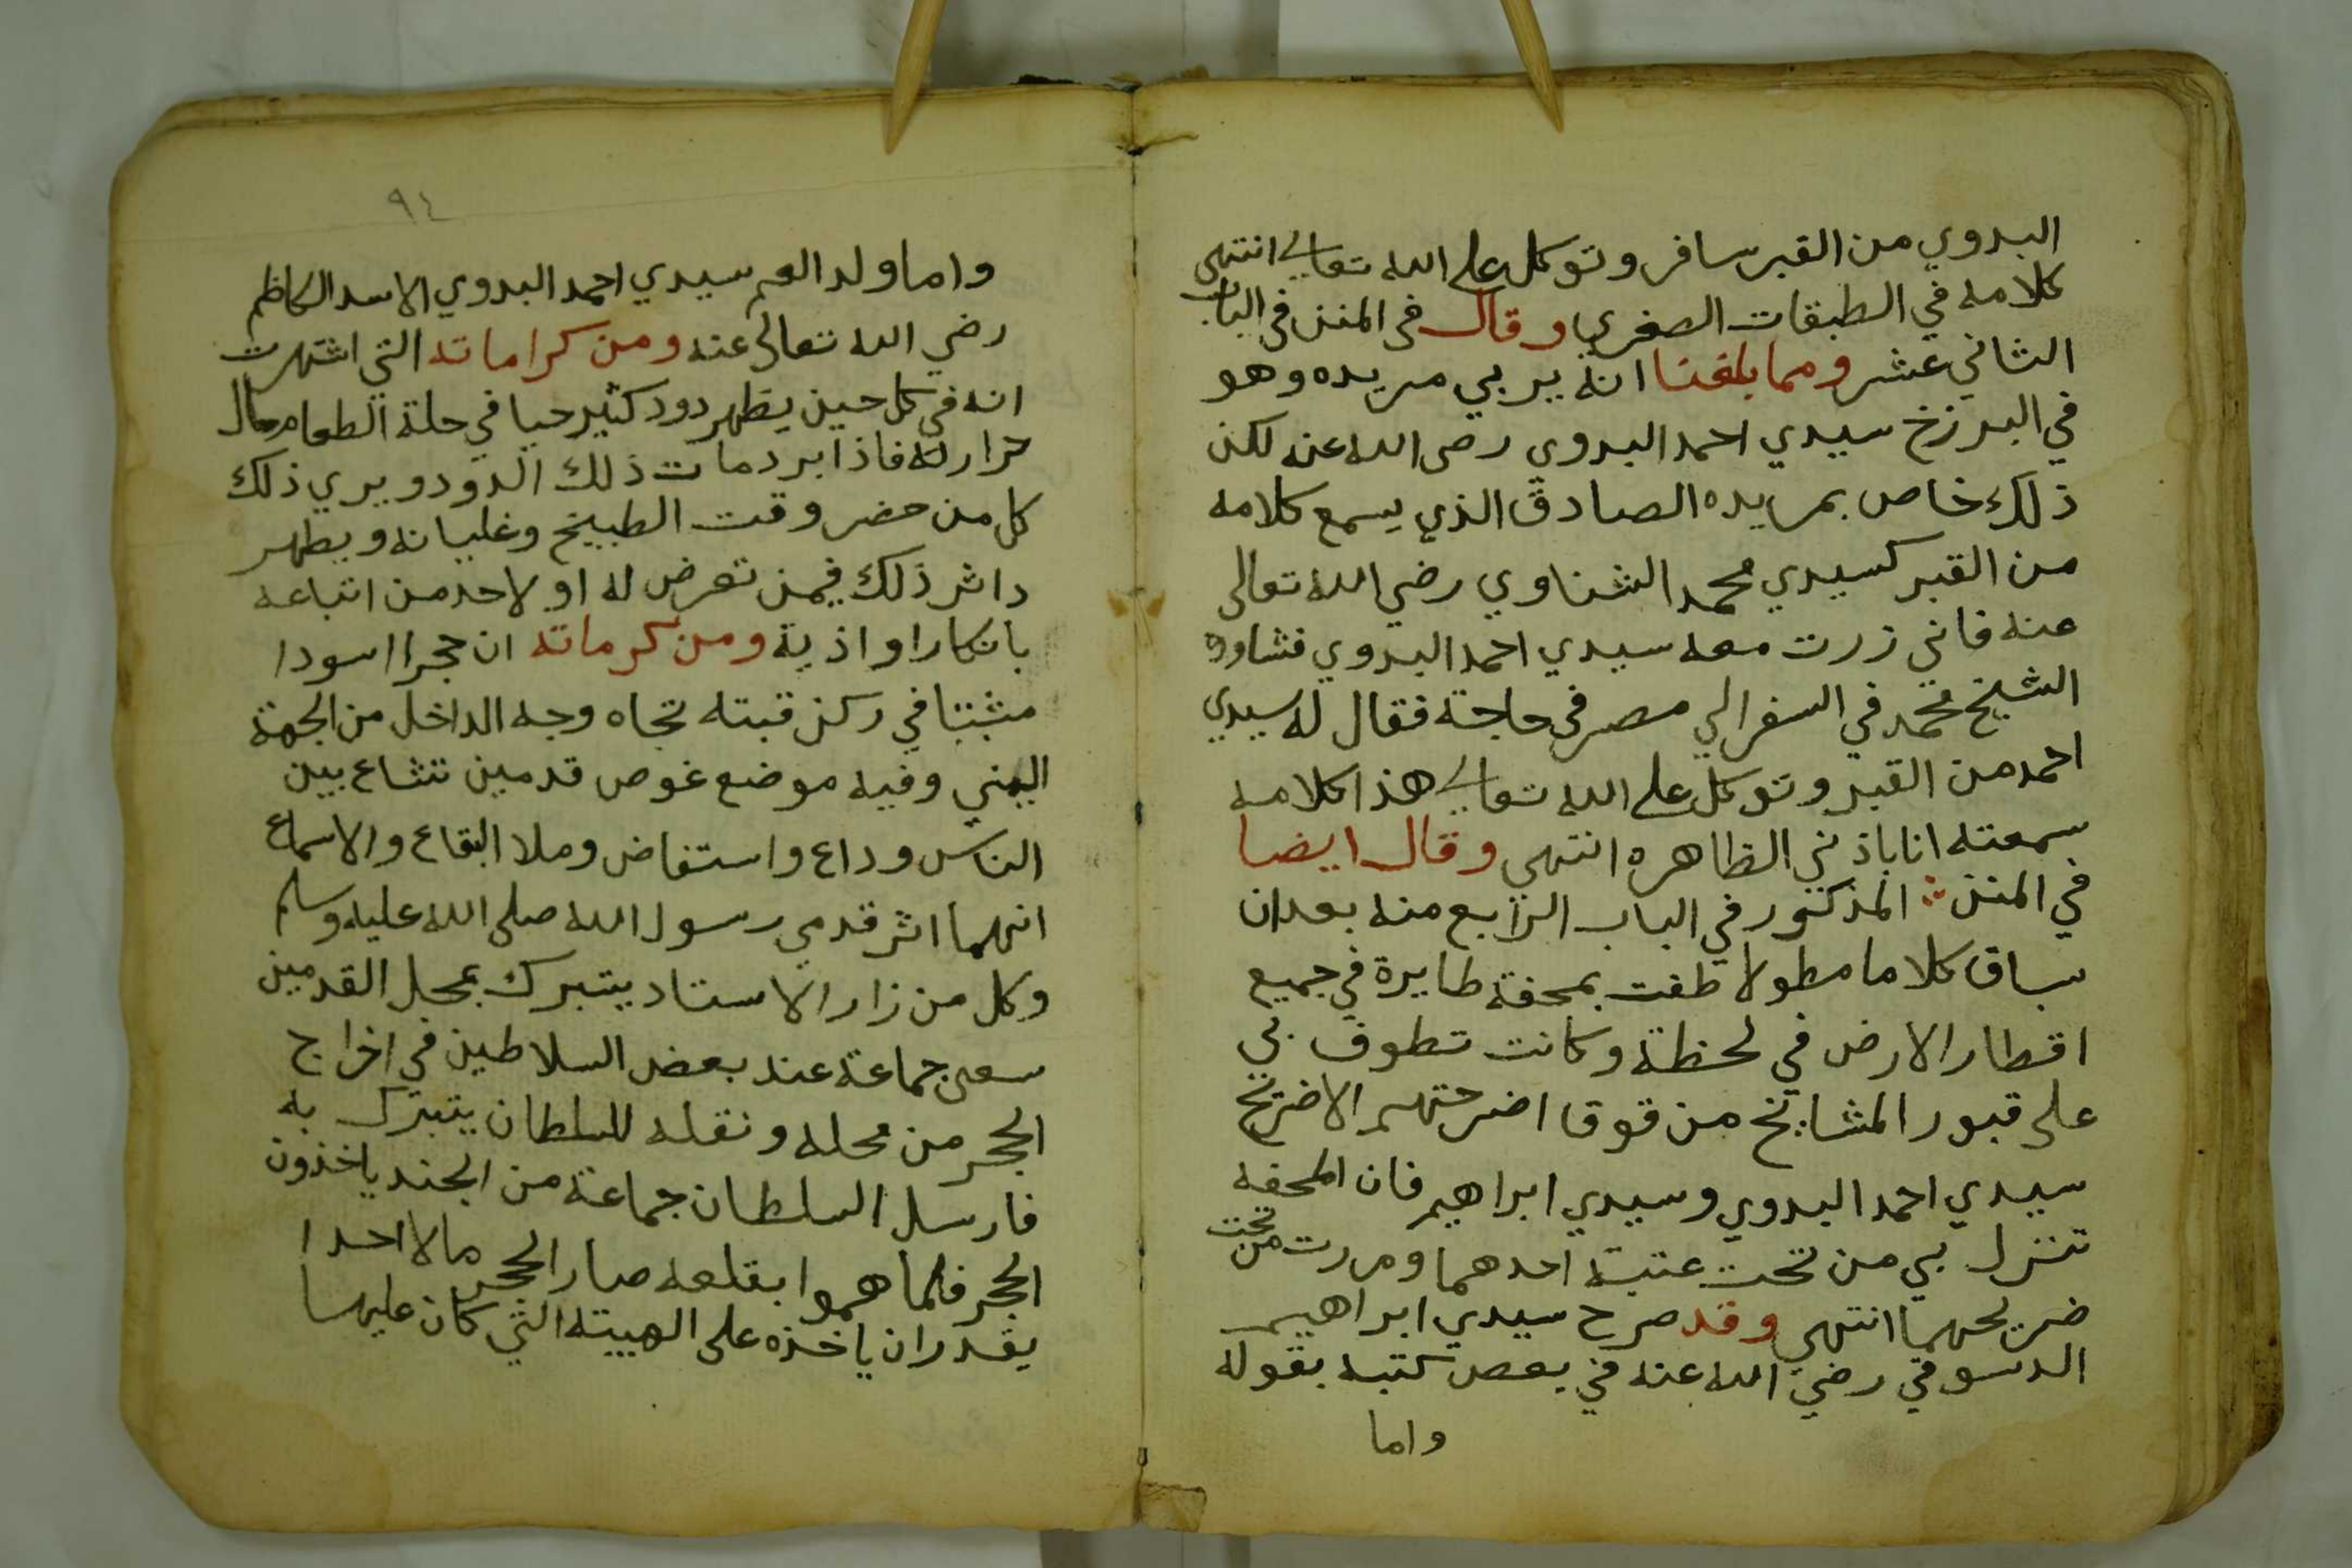 البدوي من القبر سافر وتوكل على الله تعالى انتهى
كلامه في الطبقات الصغرى وقال فى المنن فى الباب
الثاني عشر ومما بلغنا انه يربي مريده وهو
في البرزخ سيدي احمد البدوي رضى الله عنه لكن
ذلك خاص بمريده الصادق الذي يسمع كلامه
من القبر كسيدي محمد الشناوي رضي الله تعالى
عنه فاني زرت معه سيدي احمد البدوي فشاوره
الشيخ محمد في السفر الي مصر في حاجة فقال له سيدي
احمد من القبر وتوكل على الله تعالى هذا كلامه
سمعته انا باذني الظاهره انتهى وقال ايضا
في المنن المذكور في الباب الرابع منه بعد ان
ساق كلاما مطولا طفت بمحفة طايرة في جميع
اقطار الارض في لحظة وكانت تطوف بي
على قبور المشايخ من فوق اضرحتهم الا ضريح
سيدي احمد البدوي وسيدي ابراهيم فان المحفه
تنزل بي من تحت عتبة احدهما ومررت من تحت
ضريحهما انتهى وقد صرح سيدي ابراهيم
الدسوقي رضي الله عنه في بعض كتبه بقوله
واما
٩٤
واما ولد العم سيدي احمد البدوي الاسد الكاظم
رضي الله تعالى عنه ومن كراماته التي اشتهرت
انه في كل حين يظهر دود كثير حيا في حلة الطعام حال
حرارته فاذا برد مات ذلك الدود ويري ذلك
كل من حضر وقت الطبيخ وغليانه ويظهر
داثر ذلك فيمن تعرض له او لاحد من اتباعه
بانكار او اذية ومن كرماته ان حجرا اسودا
مثبتا في ركن قبته تجاه وجه الداخل من الجهة
اليمني وفيه موضع غوص قدمين تشاع بين
الناس وذاع واستفاض وملا البقاع والاسماع
انهما اثر قدمي رسول الله صلى الله عليه وسلم
وكل من زار الاستاد يتبرك بمحل القدمين
سعى جماعة عند بعض السلاطين في اخراج
الحجر من محله ونقله للسلطان يتبرك به
فارسل السلطان جماعة من الجند ياخذون
الحجر فلما هموا بقلعه صار الحجر مالا احدا
يقدر ان ياخذه على الهييته التي كان عليها